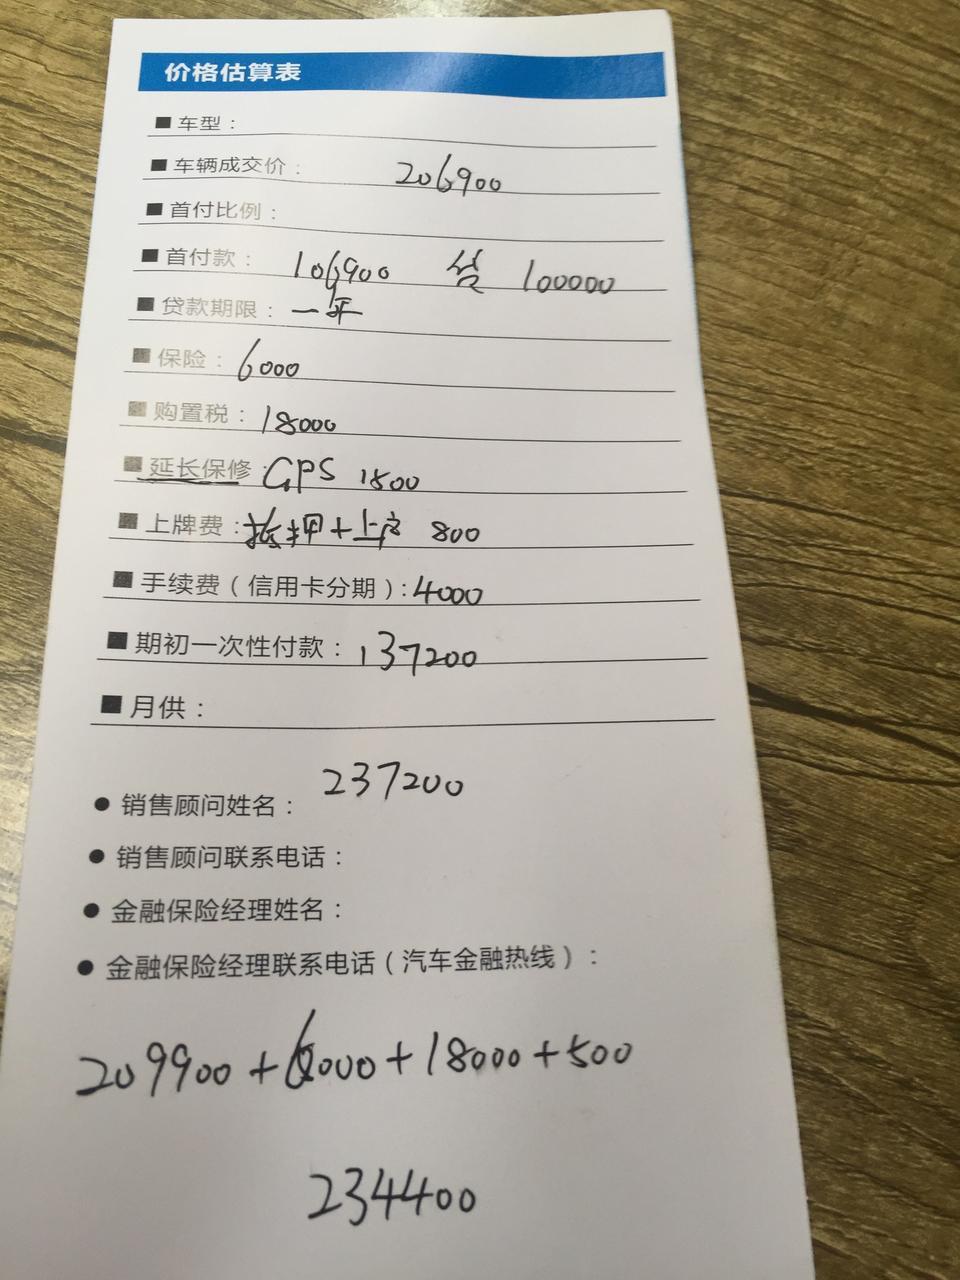 价格估算表
■ 车型：
■ 车辆成交价： 206900
■ 首付比例：
■ 首付款： 106900 贷 100000
■ 贷款期限： 一年
■ 保险： 6000
■ 购置税： 18000
■ 延长保修： GPS 1500
■ 上牌费： 抵押+上户 800
■ 手续费（信用卡分期）： 4000
■ 期初一次性付款： 137200
■ 月供：
237200
● 销售顾问姓名：
● 销售顾问联系电话：
● 金融保险经理姓名：
● 金融保险经理联系电话（汽车金融热线）：
209900+6000+18000+500
234400